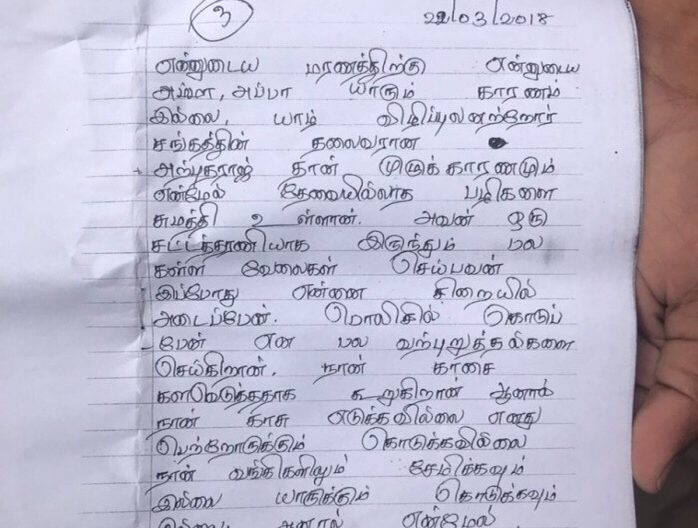 3
22/03/2018
என்னுடைய மரணத்திற்கு என்னுடைய
அம்மா, அப்பா யாரும் காரணம்
இல்லை, யாழ் விழிப்புலனற்றோர்
சங்கத்தின் தலைவரான
அற்புதராஜ் தான் முழுக் காரணமும்
என்மேல் தேவையில்லாத பழிகளை
சுமத்தி உள்ளான். அவன் ஒரு
சட்டத்தரணியாக இருந்தும் பல
கள்ள வேலைகள் செய்பவன்
இப்போது என்னை சிறையில்
அடைப்பேன். பொலிசில் கொடுப்
பேன் என பல வற்புறுத்தல்களை
செய்கிறான். நான் காசை
களவெடுத்ததாக கூறுகிறான் ஆனால்
நான் காசு எடுக்கவில்லை எனது
பெற்றோடுக்கும் கொடுக்கவில்லை
நான் வங்கிகளிலும் சேமிக்கவும்
இல்லை யாருக்கும் கொடுக்கவும்
இல்லை ஆனால் என்மேல்